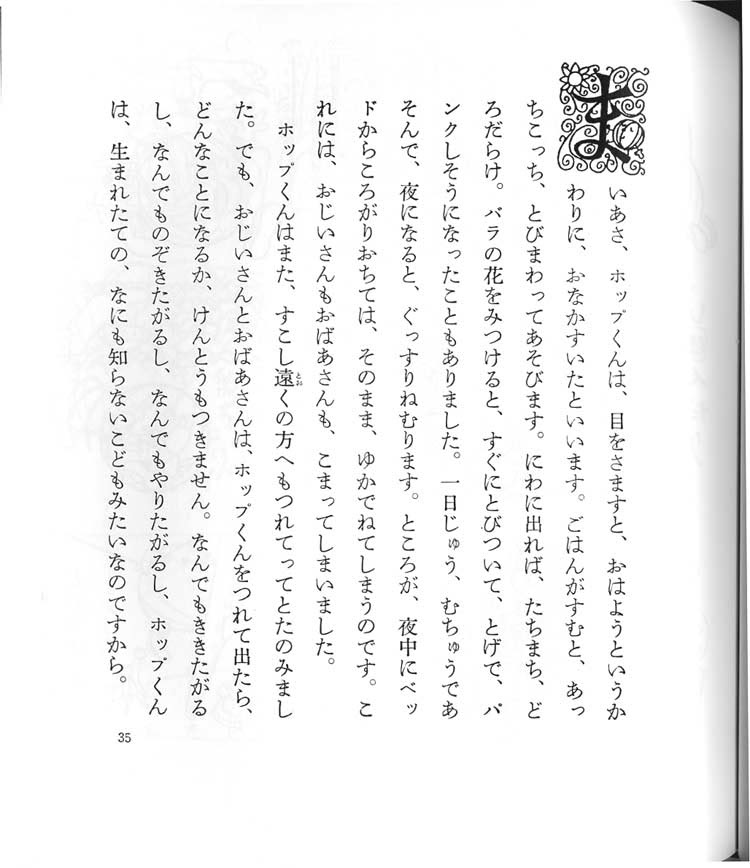 ま
いあさ、ホップくんは、目をさますと、おはようというか
わりに、おなかすいたといいます。ごはんがすむと、あっ
ちこっち、とびまわってあそびます。にわに出れば、たちまち、ど
ろだらけ。バラの花をみつけると、すぐにとびついて、とげで、パ
ンクしそうになったこともありました。一日じゅう、むちゅうであ
そんで、夜になると、ぐっすりねむります。ところが、夜中にベッ
ドからころがりおちては、そのまま、ゆかでねてしまうのです。こ
れには、おじいさんもおばあさんも、こまってしまいました。
ホップくんはまた、すこし遠くの方へもつれてってとたのみまし
とお
た。でも、おじいさんとおばあさんは、ホップくんをつれて出たら、
どんなことになるか、けんとうもつきません。なんでもききたがる
し、なんでものぞきたがるし、なんでもやりたがるし、ホップくん
は、生まれたての、なにも知らないこどもみたいなのですから。
35